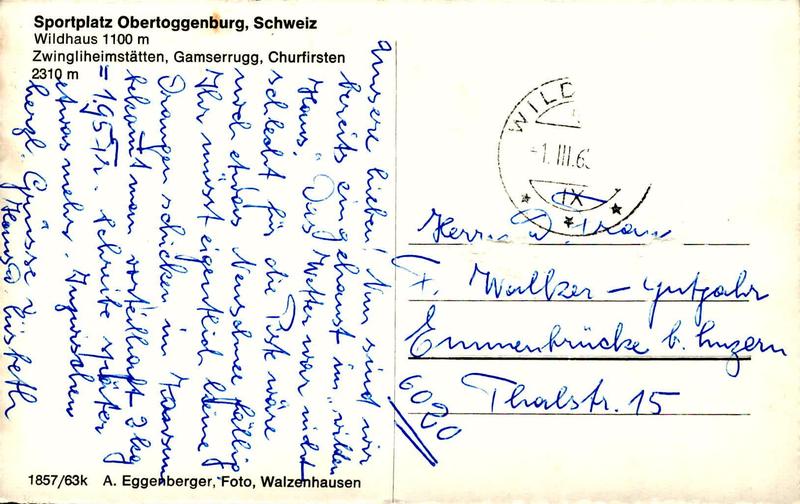 Sportplatz Obertoggenburg, Schweiz
Wildhaus 1100 m
Zwingliheimstätten, Gamserrugg, Churfirsten
2310 m
Unsere lieben! Nun sind wir
bereits eingehaust im „wilden
Haus." Das Wetter war nicht
schlecht für die Piste wäre
noch etwas Neuschnee fällig
Ihr müsst eigentlich keine
Orangen schicken im
bekomt man vorteilhaft 2 kg
= 1.95 Fr. Schreibe später
etwas mehr. Inzwischen
herzl. Grüsse v.
Hans u. Lisbeth
WILD
-1.III.6
IX
Herrn u. Frau
F. Wallzer - Gutjahr
Emmenbrücke b. Luzern
6020
Thalstr. 15
1857/63k A. Eggenberger, Foto, Walzenhausen